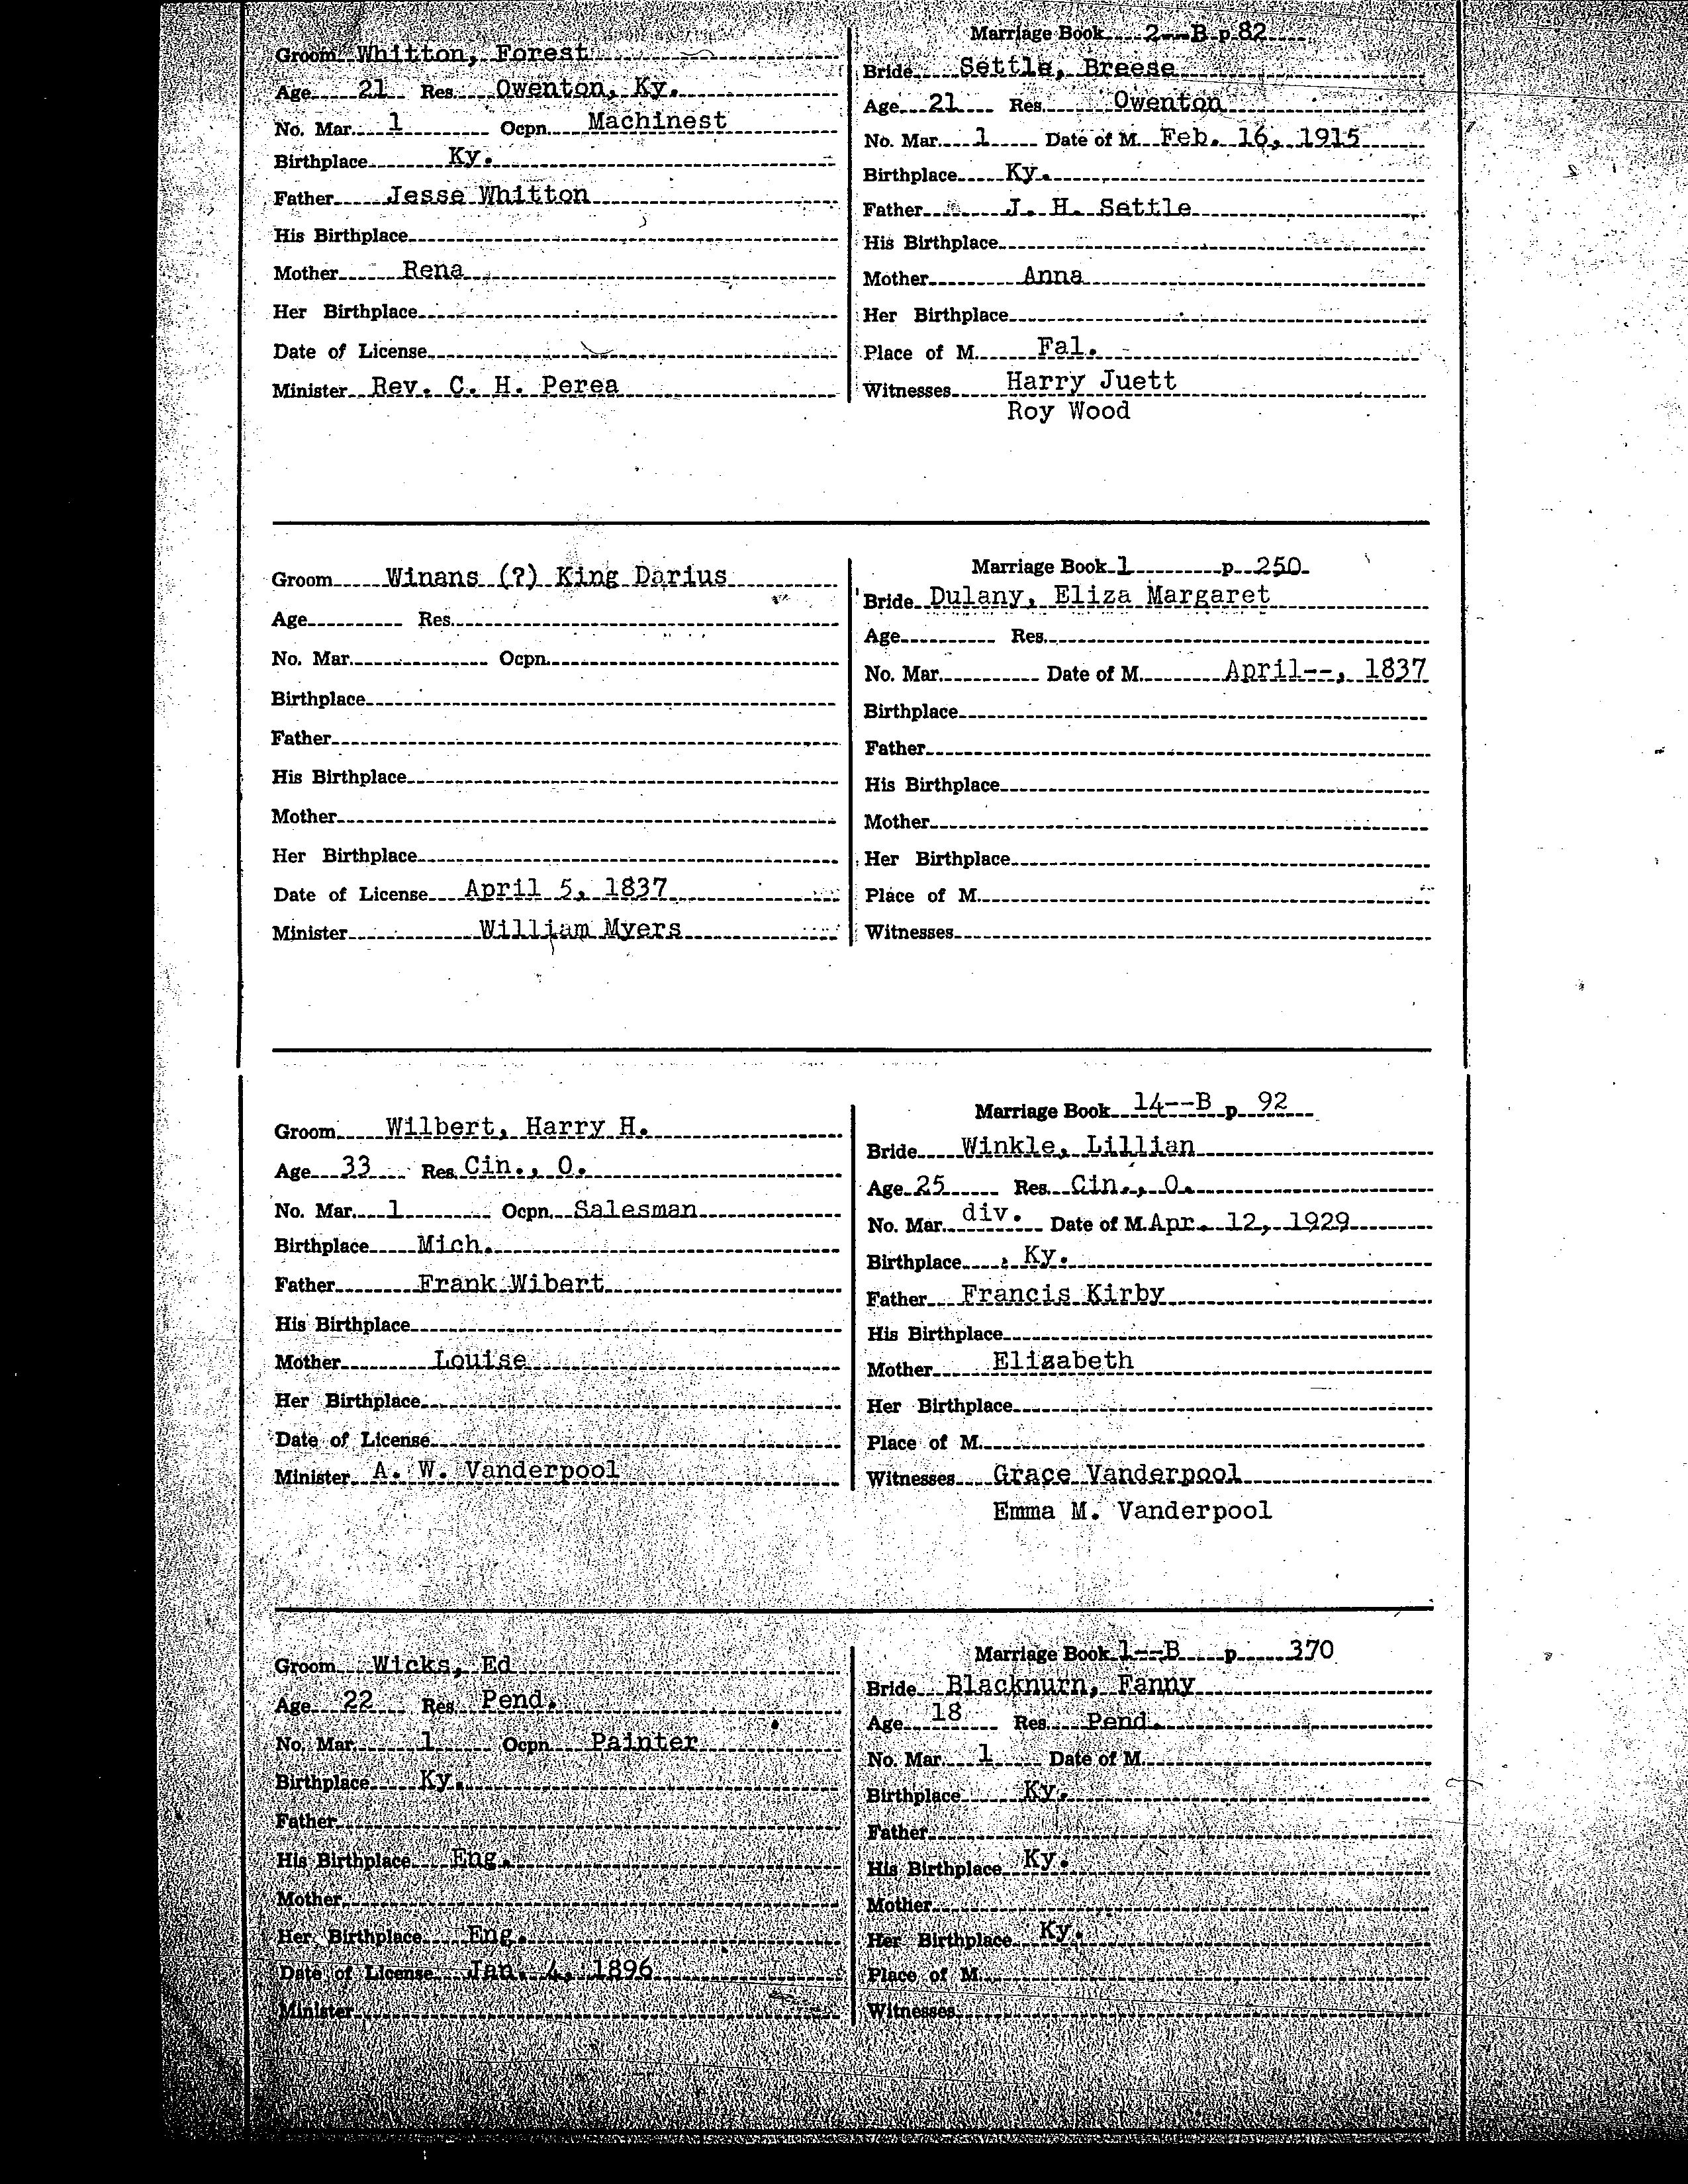 Groom Whitton, Forest
Age 21 Res. Owenton, Ky.
No. Mar. 1 Ocpn. Machinest
Birthplace Ky.
Father Jesse Whitton
His Birthplace
Mother Rena
Her Birthplace
Date of License
Minister Rev. C. H. Perea
Marriage Book 2--B p. 82
Bride Settle, Breese
Age 21 Res. Owenton
No. Mar. 1 Date of M. Feb. 16, 1915
Birthplace Ky.
Father J. H. Settle
His Birthplace
Mother Anna
Her Birthplace
Place of M. Fal.
Witnesses Harry Juett
Roy Wood
Groom Winans (?) King Darius
Age Res.
No. Mar. Ocpn.
Birthplace
Father
His Birthplace
Mother
Her Birthplace
Date of License April 5, 1837
Minister William Myers
Marriage Book 1 p. 250
Bride Dulany, Eliza Margaret
Age Res.
No. Mar. Date of M. April--, 1837
Birthplace
Father
His Birthplace
Mother
Her Birthplace
Place of M.
Witnesses
Groom Wilbert, Harry H.
Age 33 Res. Cin., O.
No. Mar. 1 Ocpn. Salesman
Birthplace Mich.
Father Frank Wibert
His Birthplace
Mother Louise
Her Birthplace
Date of License
Minister A. W. Vanderpool
Marriage Book 14--B p. 92
Bride Winkle, Lillian
Age 25 Res. Cin., O.
No. Mar. div. Date of M. Apr. 12, 1929
Birthplace Ky.
Father Francis Kirby
His Birthplace
Mother Elizabeth
Her Birthplace
Place of M.
Witnesses Grace Vanderpool
Emma M. Vanderpool
Groom Wicks, Ed
Age 22 Res. Pend.
No. Mar. 1 Ocpn. Painter
Birthplace Ky.
Father
His Birthplace Eng.
Mother
Her Birthplace Eng.
Date of License Jan. 4, 1896
Minister
Marriage Book 1--B p. 370
Bride Blacknurn, Fanny
Age 18 Res. Pend.
No. Mar. 1 Date of M.
Birthplace Ky.
Father
His Birthplace Ky.
Mother
Her Birthplace Ky.
Place of M.
Witnesses